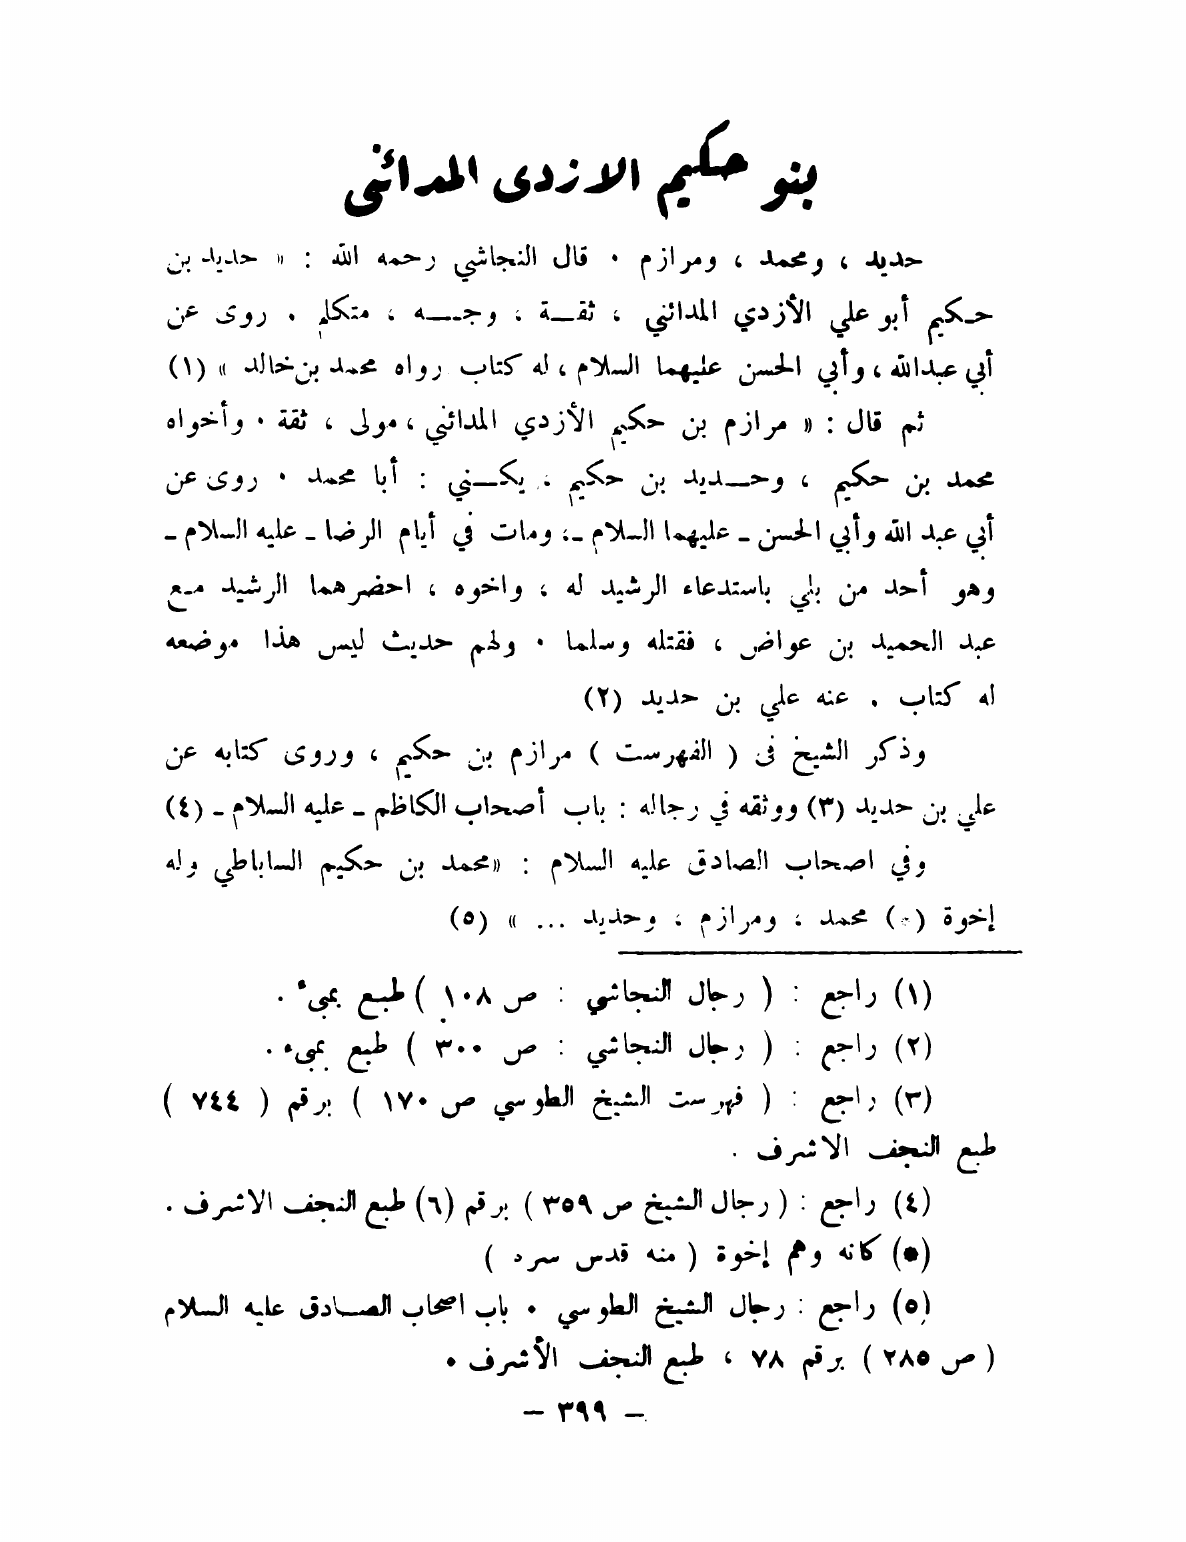 بنو حكيم الازدى المدائنى
حديد ، ومحمد ، ومرازم . قال النجاشي رحمه الله : « حديد بن
حكيم أبو علي الأزدي المدائني ، ثقة ، وجه ، متكلم . روى عن
أبي عبدالله ، وأبي الحسن عليهما السلام ، له كتاب رواه محمد بن خالد » (١)
ثم قال : « مرازم بن حكيم الأزدي المدائني ، مولى ، ثقة . وأخواه
محمد بن حكيم ، وحديد بن حكيم ، يكني : أبا محمد . روى عن
أبي عبد الله وأبي الحسن - عليهما السلام - ، ومات في أيام الرضا - عليه السلام -
وهو أحد من بلي باستدعاء الرشيد له ، واخوه ، احضرهما الرشيد مع
عبد الحميد بن عواض ، فقتله وسلما . ولهم حديث ليس هذا موضعه
له كتاب . عنه علي بن حديد (٢)
وذكر الشيخ فى ( الفهرست ) مرازم بن حكيم ، وروى كتابه عن
علي بن حديد (٣) ووثقه في رجاله : باب أصحاب الكاظم - عليه السلام - (٤)
وفي اصحاب الصادق عليه السلام : «محمد بن حكيم الساباطي وله
إخوة (*) محمد ، ومرازم ، وحديد ... » (٥)
(١) راجع : ( رجال النجاشي : ص ١٠٨ ) طبع بمبىء .
(٢) راجع : ( رجال النجاشي : ص ٣٠٠ ) طبع بمبىء .
(٣) راجع : ( فهرست الشيخ الطوسي ص ١٧٠ ) برقم ( ٧٤٤ )
طبع النجف الاشرف .
(٤) راجع : ( رجال الشيخ ص ٣٥٩ ) برقم (٦) طبع النجف الاشرف .
(*) كانه وهم إخوة ( منه قدس سره )
(٥) راجع : رجال الشيخ الطوسي . باب اصحاب الصادق عليه السلام
( ص ٢٨٥ ) برقم ٧٨ ، طبع النجف الأشرف .
- ٣٩٩ -